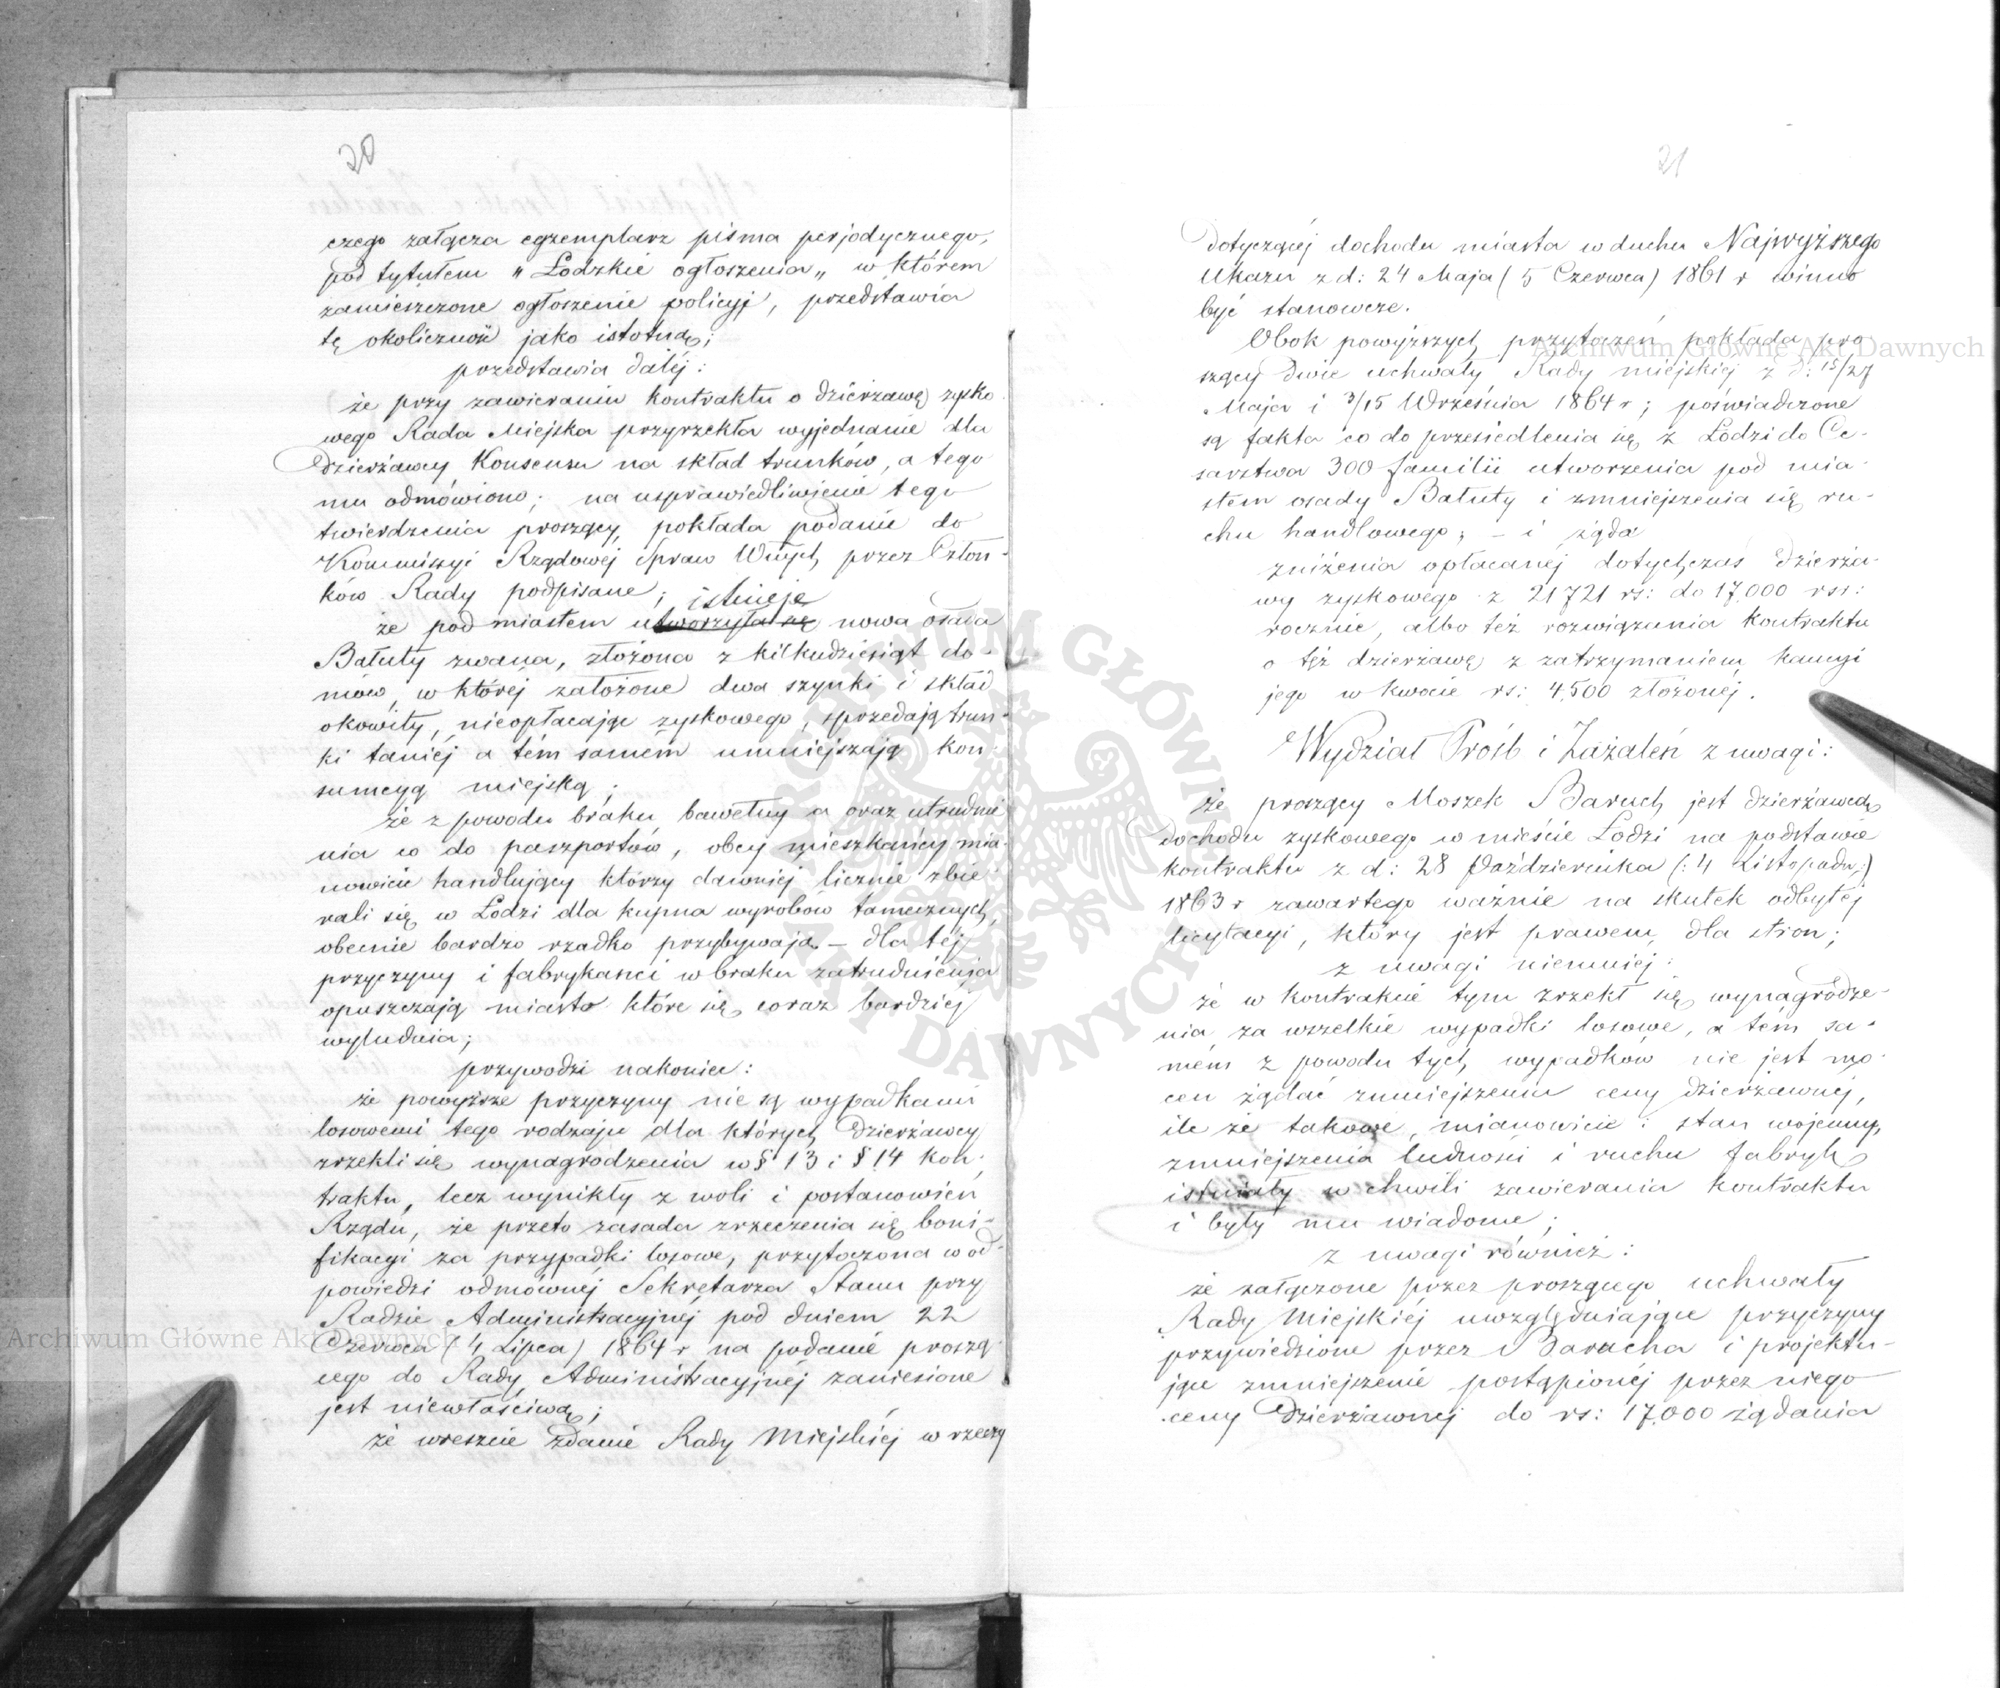 20
czego załącza egzemplarz pisma perjodycznego,
pod tytułem „Łodzkie ogłoszenia„ w którem
zamieszczone ogłoszenie policyi, przedstawia
tę okoliczność jako istotną;
przedstawia daléj:
że przy zawieraniu kontraktu o dzierżawę zysko
wego Rada Miejska przyrzekła wyjednanie dla
Dzierżawcy Konsensu na skład trunków, a tego
mu odmówiono; na usprawiedliwienie tego
twierdzenia proszący, pokłada podanie do
Kommissyi Rządowej Spraw Wnych przez Człon-
ków Rady podpisane;
istnieje
że pod miastem utworzyła się nowa osada
Bałuty zwana, złożona z kilkudziesiąt do-
mów, w któréj założone dwa szynki i skład
okowity, nieopłacając zyskowego, sprzedają trun-
ki taniéj a tém samém umniejszają kon-
sumcyą miejską;
że z powodu braku bawełny a oraz utrudnie
nia co do paszportów, obcy mieszkańcy mia-
nowicie handlujący którzy dawniej licznie zbie-
rali się w Łodzi dla kupna wyrobów tamecznych,
obecnie bardzo rzadko przybywają – dla téj
przyczyny i fabrykanci w braku zatrudnienia
opuszczają miasto które się coraz bardziej
wyludnia;
przywodzi nakoniec:
że powyższe przyczyny nie są wypadkami
losowemi tego rodzaju dla których Dzierżawcy
zrzekli się wynagrodzenia w § 13 i § 14 kon-
traktu, lecz wynikły z woli i postanowień
Rządu, że przeto zasada zrzeczenia się boni-
fikacyi za przypadki losowe, przytoczona w od-
powiedzi odmównéj Sekretarza Stanu przy
Radzie Administracyjnéj pod dniem 22
Czerwca (4 Lipca) 1864 r na podanie proszą-
cego do Rady Administracyjnéj zaniesione
jest niewłaściwą;
że wreszcie zdanie Rady Miejskiéj w rzeczy
21
dotyczącéj dochodu miasta w duchu Najwyższego
Ukazu z d: 24 Maja (5 Czerwca) 1861 r winno
być stanowcze.
Obok powyższych przytoczeń pokłada pro-
szący dwie uchwały Rady miejskiéj z d: 15/27
Maja i 3/15 Września 1864 r; poświadczone
są fakta co do przesiedlenia się z Łodzi do Ce-
sarstwa 300 familii utworzenia pod mia-
stem osady Bałuty i zmniejszenia się ru-
chu handlowego; – i żąda
zniżenia opłacanéj dotychczas dzierża-
wy zyskowego z 21721 rs: do 17.000 rsr:
rocznie, albo też rozwiązania kontraktu
o tęż dzierżawę z zatrzymaniem kaucyi
jego w kwocie rs: 4.500 złożonéj.
Wydział Próśb i Zażaleń z uwagi:
że proszący Moszek Baruch jest dzierżawcą
dochodu zyskowego w mieście Łodzi na podstawie
kontraktu z d: 28 Października (: 4 Listopada:)
1863 r zawartego ważnie na skutek odbytéj
licytacyi, który jest prawem dla stron;
z uwagi niemniéj:
że w kontrakcie tym zrzekł się wynagrodze-
nia za wszelkie wypadki losowe, a tém sa-
mém z powodu tych wypadków nie jest mo-
cen żądać zmniejszenia ceny dzierżawnéj,
ile że takowe, mianowicie: stan wojenny,
zmniejszenia ludności i ruchu fabryk
istniały w chwili zawierania kontraktu
i były mu wiadome;
z uwagi również:
że załączone przez proszącego uchwały
Rady Miejskiéj uwzględniające przyczyny
przywiedzione przez Barucha i projektu-
jące zmniejszenie postąpionéj przez niego
ceny Dzierżawnéj do rs: 17.000 żądania
Archiwum Główne Akt Dawnych
Archiwum Główne Akt Dawnych
ARCHIWUM GŁÓWNE AKT DAWNYCH